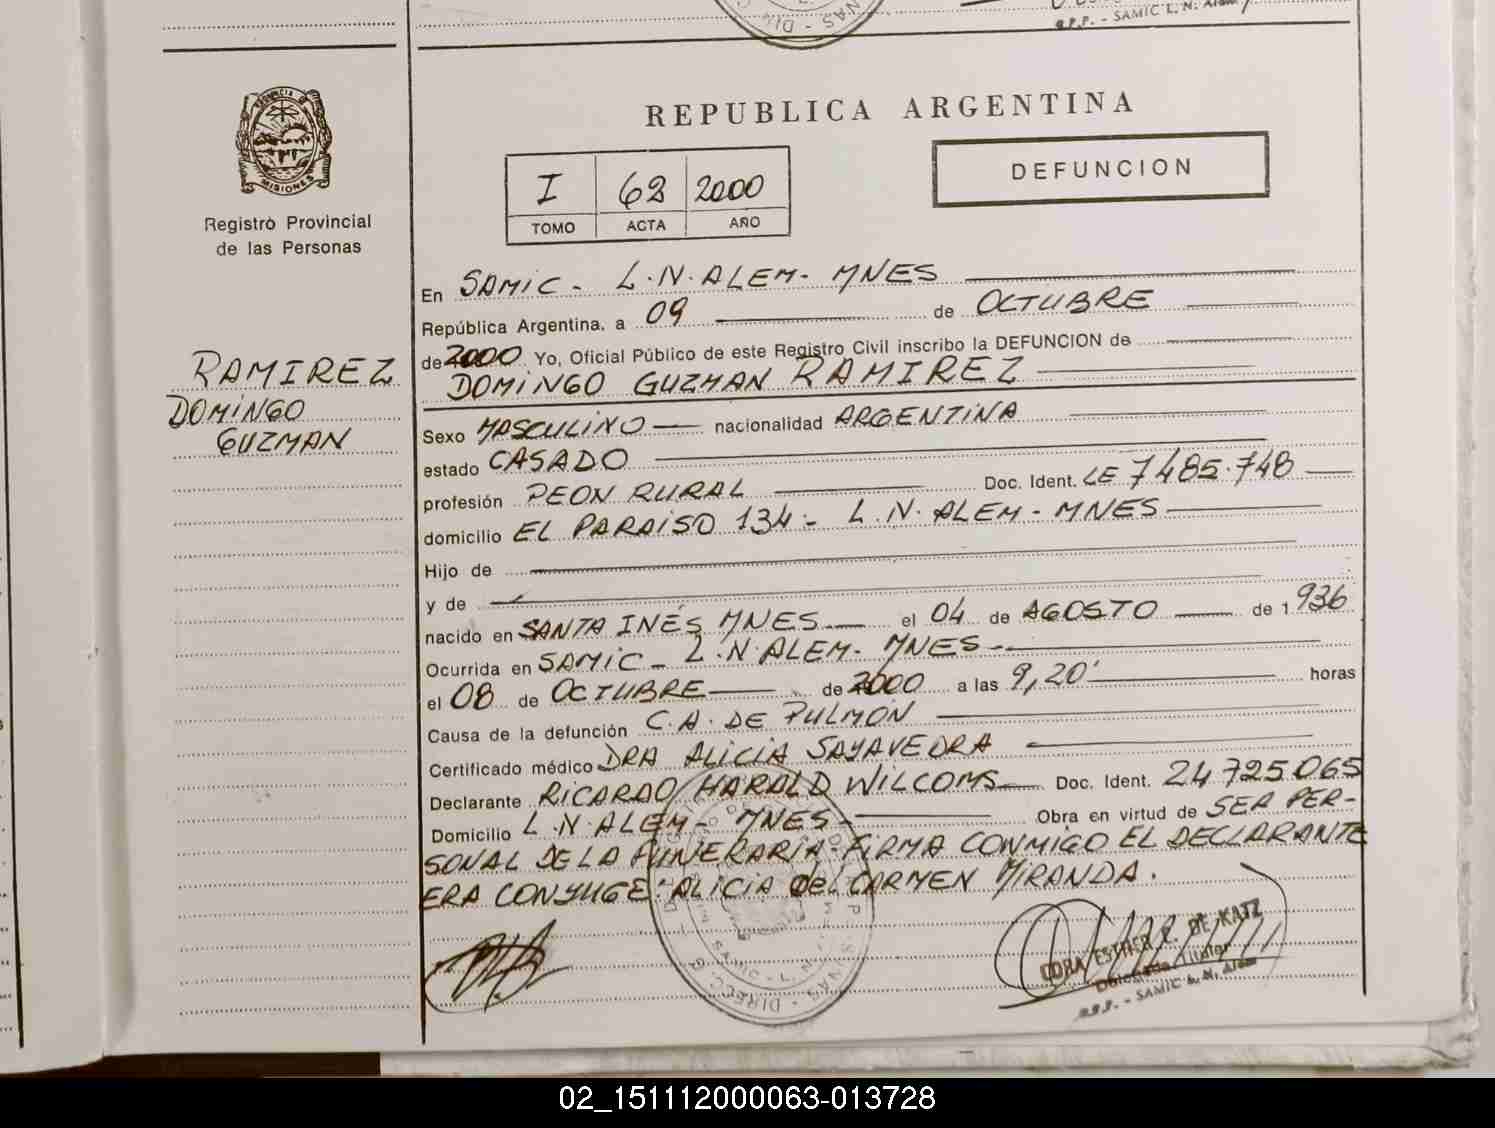 G.P.P. - SAMIC L. N. Alem
PROVINCIA DE
MISIONES
Registro Provincial
de las Personas
REPUBLICA ARGENTINA
I 63 2000
TOMO ACTA AÑO
DEFUNCION
RAMIREZ
DOMINGO
GUZMAN
En SAMIC - L.N.ALEM- MNES
República Argentina, a 09 de OCTUBRE
de 2000 Yo, Oficial Público de este Registro Civil inscribo la DEFUNCION de
DOMINGO GUZMAN RAMIREZ
Sexo MASCULINO nacionalidad ARGENTINA
estado CASADO
profesión PEON RURAL Doc. Ident. LE 7485.748
domicilio EL PARAISO 134- L.N. ALEM - MNES
Hijo de
y de
nacido en SANTA INÉS MNES el 04 de AGOSTO de 1.936
Ocurrida en SAMIC - L.N ALEM- MNES-
el 08 de OCTUBRE de 2000 a las 9,20' horas
Causa de la defunción C.A. DE PULMON
Certificado médico DRA ALICIA SAYAVEDRA
Declarante RICARDO HARALD WILCOMS Doc. Ident. 24725065
Domicilio L.N ALEM- MNES- Obra en virtud de SER PER-
SONAL DE LA FUNERARIA- FIRMA CONMIGO EL DECLARANTE
ERA CONYUGE: ALICIA del CARMEN MIRANDA.
CORA ESTHER R. DE KATZ
Delegada Titular
R.P.P. - SAMIC L. N. Alem
02_151112000063-013728